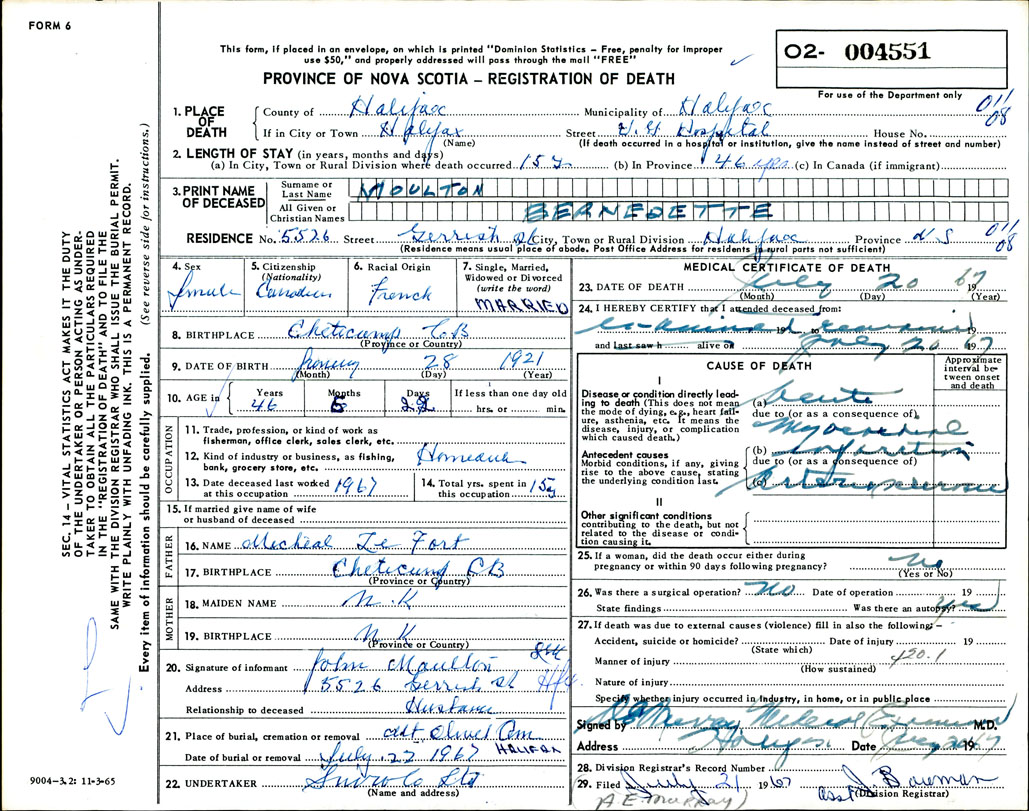 FORM 6
This form, if placed in an envelope, on which is printed "Dominion Statistics – Free, penalty for improper
use $50," and properly addressed will pass through the mail "FREE"
O2- 004551
PROVINCE OF NOVA SCOTIA – REGISTRATION OF DEATH
For use of the Department only
1. PLACE OF DEATH
County of Halifax Municipality of Halifax 011/08
If in City or Town Halifax Street V.G. Hospital House No.
(Name) (If death occurred in a hospital or institution, give the name instead of street and number)
2. LENGTH OF STAY (in years, months and days)
(a) In City, Town or Rural Division where death occurred 15 y (b) In Province 46 yrs (c) In Canada (if immigrant)
3. PRINT NAME OF DECEASED
Surname or Last Name MOULTON
All Given or Christian Names BERNEDETTE
RESIDENCE No. 5526 Street Gerrish St City, Town or Rural Division Halifax Province N S 011/08
(Residence means usual place of abode. Post Office Address for residents in rural parts not sufficient)
4. Sex Female
5. Citizenship (Nationality) Canadian
6. Racial Origin French
7. Single, Married, Widowed or Divorced (write the word) MARRIED
8. BIRTHPLACE Cheticamp C B
(Province or Country)
9. DATE OF BIRTH 28 1921
(Month) (Day) (Year)
10. AGE in Years 46 Months 5 Days 22 If less than one day old
hrs. or min.
OCCUPATION
11. Trade, profession, or kind of work as
fisherman, office clerk, sales clerk, etc.
12. Kind of industry or business, as fishing,
bank, grocery store, etc.
13. Date deceased last worked at this occupation 1967
14. Total yrs. spent in this occupation 15 y
15. If married give name of wife
or husband of deceased
FATHER
16. NAME Micheal Le Fort
17. BIRTHPLACE Cheticamp CB
(Province or Country)
MOTHER
18. MAIDEN NAME N.K
19. BIRTHPLACE N K
(Province or Country)
20. Signature of informant John Moulton
Address 5526 Gerrish St Hfx
Relationship to deceased Husband
21. Place of burial, cremation or removal Mt Olivet Cem
HALIFAX
Date of burial or removal July 22 1967
22. UNDERTAKER Snow Co Ltd
(Name and address)
MEDICAL CERTIFICATE OF DEATH
23. DATE OF DEATH July 20 1967
(Month) (Day) (Year)
24. I HEREBY CERTIFY that I attended deceased from:
examined 19 remains 19
and last saw h alive on July 20 1967
CAUSE OF DEATH
Approximate interval between onset and death
I
Disease or condition directly leading to death (This does not mean the mode of dying, e.g., heart failure, asthenia, etc. It means the disease, injury, or complication which caused death.)
(a) acute
due to (or as a consequence of)
myocardial
Antecedent causes
Morbid conditions, if any, giving rise to the above cause, stating the underlying condition last.
(b) infarction
due to (or as a consequence of)
(c) Arteriosclerosis
II
Other significant conditions
contributing to the death, but not related to the disease or condition causing it.
25. If a woman, did the death occur either during
pregnancy or within 90 days following pregnancy? No
(Yes or No)
26. Was there a surgical operation? No Date of operation 19
State findings Was there an autopsy? Yes
27. If death was due to external causes (violence) fill in also the following:–
Accident, suicide or homicide? Date of injury 19
(State which)
Manner of injury 420.1
(How sustained)
Nature of injury
Specify whether injury occurred in industry, in home, or in public place
Signed by Murray Medical Examiner M.D.
Address Halifax Date 19
28. Division Registrar's Record Number
29. Filed July 21 1967 J Bowman
asst (Division Registrar)
SEC. 14 – VITAL STATISTICS ACT MAKES IT THE DUTY
OF THE UNDERTAKER OR PERSON ACTING AS UNDER-
TAKER TO OBTAIN ALL THE PARTICULARS REQUIRED
IN THE "REGISTRATION OF DEATH" AND TO FILE THE
SAME WITH THE DIVISION REGISTRAR WHO SHALL ISSUE THE BURIAL PERMIT.
WRITE PLAINLY WITH UNFADING INK. THIS IS A PERMANENT RECORD.
Every item of information should be carefully supplied. (See reverse side for instructions.)
9004-3.2: 11-3-65